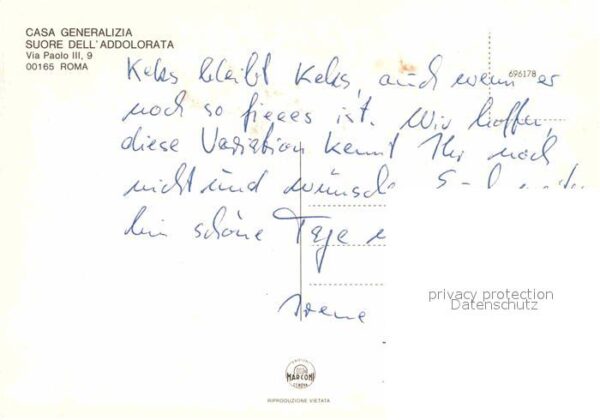 CASA GENERALIZIA
SUORE DELL'ADDOLORATA
Via Paolo III, 9
00165 ROMA
696178
Keks bleibt Keks, auch wenn er
noch so fieses ist. Wir hoffen,
diese Variation kennt Ihr noch
nicht und
schöne Tage
Irene
privacy protection
Datenschutz
MARCONI
GENOVA
RIPRODUZIONE VIETATA